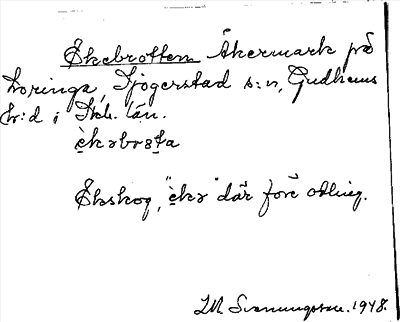 Ekebrotten Åkermark på
Loringa, Fjogerstad s:n, Gudhems
hr:d i Skb. län.
Ekskog, "eke" där förr odling.
Svenungsson. 1948.